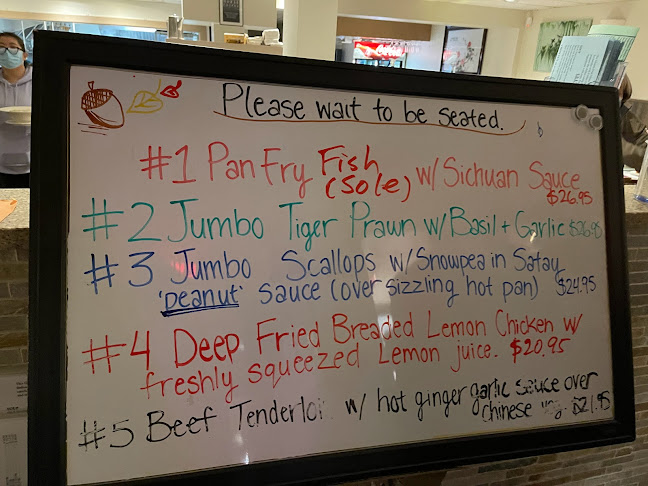 Please wait to be seated.
#1 Pan Fry Fish (Sole) w/ Sichuan Sauce $26.95
#2 Jumbo Tiger Prawn w/ Basil + Garlic $26.95
#3 Jumbo Scallops w/ Snowpea in Satay
'peanut' sauce (over sizzling hot pan) $24.95
#4 Deep Fried Breaded Lemon Chicken w/
freshly squeezed Lemon juice. $20.95
#5 Beef Tenderloi w/ hot ginger garlic sauce over
chinese $21.95